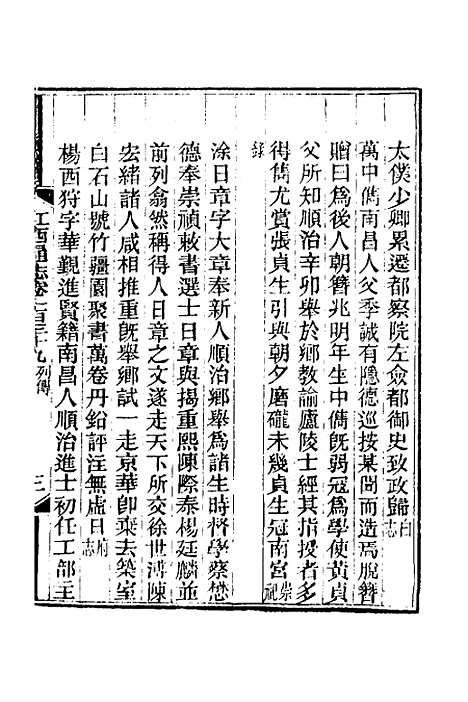 太僕少卿累遷都察院左僉都御史致政歸白志
萬中儁南昌人父季誠有隱德巡按某聞而造焉脫簪
贈曰爲後人朝簪兆明年生中儁旣弱冠爲學使黃貞
父所知順治辛卯舉於鄉教諭廬陵士經其指授者多
得儁尤賞張貞生引與朝夕磨礲未幾貞生冠南宮崇祀
錄
涂日章字大章奉新人順治鄉舉爲諸生時督學蔡懋
德奉崇禎敕書選士日章與揭重熙陳際泰楊廷麟並
前列翕然稱得人日章之文遂走天下所交徐世溥陳
宏緒諸人咸相推重旣舉鄉試一走京華卽棄去築室
白石山號竹疆園聚書萬卷丹鉛評注無虛日府志
楊西狩字華覲進賢籍南昌人順治進士初任工部主
江西通志卷一百三十九列傳 三